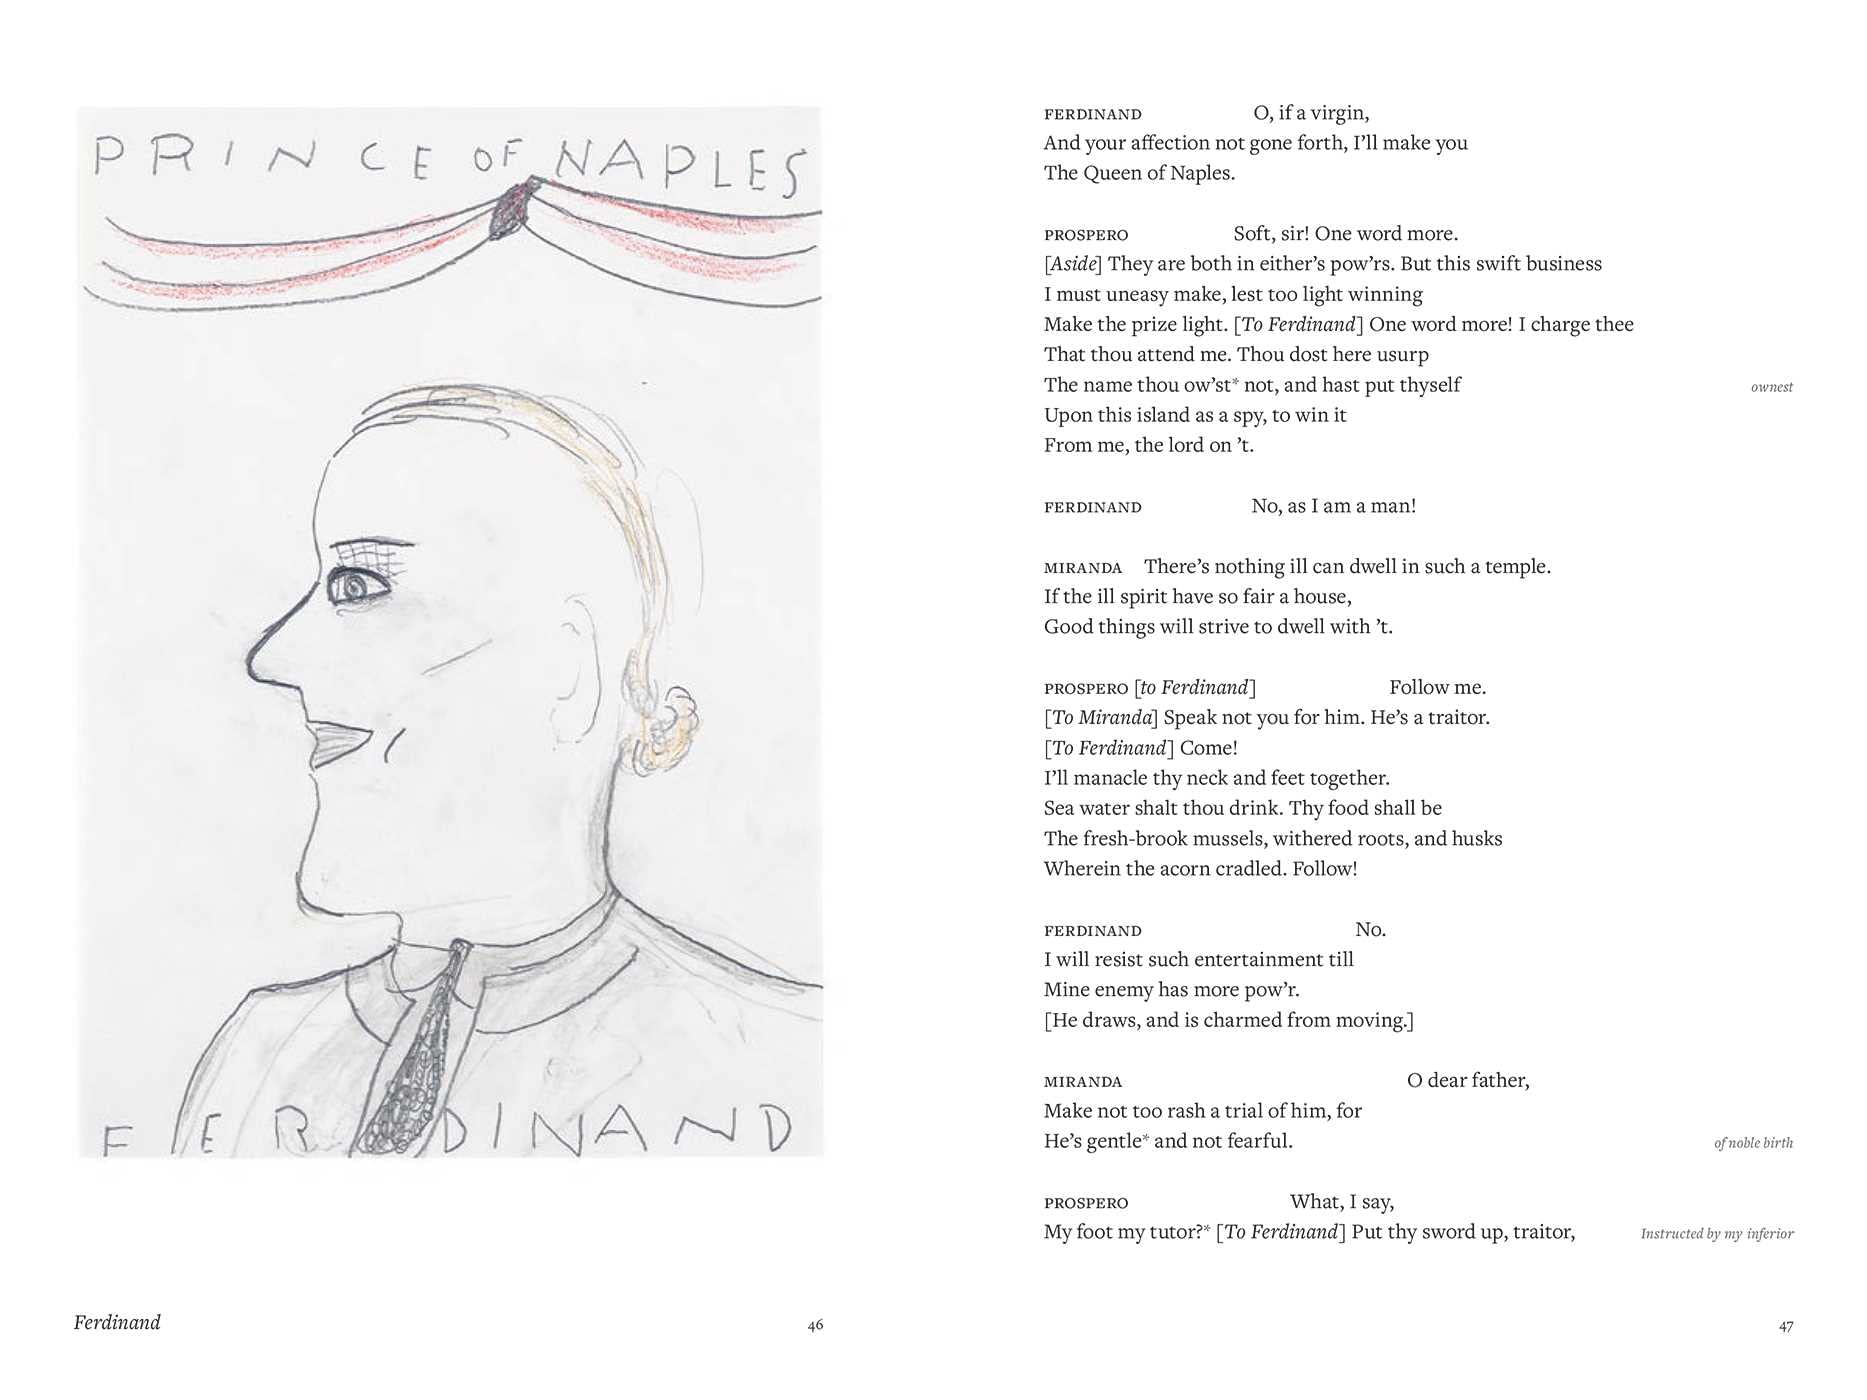 PRINCE OF NAPLES
FERDINAND
Ferdinand
46
FERDINAND O, if a virgin,
And your affection not gone forth, I’ll make you
The Queen of Naples.
PROSPERO Soft, sir! One word more.
[Aside] They are both in either’s pow’rs. But this swift business
I must uneasy make, lest too light winning
Make the prize light. [To Ferdinand] One word more! I charge thee
That thou attend me. Thou dost here usurp
The name thou ow’st* not, and hast put thyself ownest
Upon this island as a spy, to win it
From me, the lord on ’t.
FERDINAND No, as I am a man!
MIRANDA There’s nothing ill can dwell in such a temple.
If the ill spirit have so fair a house,
Good things will strive to dwell with ’t.
PROSPERO [to Ferdinand] Follow me.
[To Miranda] Speak not you for him. He’s a traitor.
[To Ferdinand] Come!
I’ll manacle thy neck and feet together.
Sea water shalt thou drink. Thy food shall be
The fresh-brook mussels, withered roots, and husks
Wherein the acorn cradled. Follow!
FERDINAND No.
I will resist such entertainment till
Mine enemy has more pow’r.
[He draws, and is charmed from moving.]
MIRANDA O dear father,
Make not too rash a trial of him, for
He’s gentle* and not fearful. of noble birth
PROSPERO What, I say,
My foot my tutor?* [To Ferdinand] Put thy sword up, traitor, Instructed by my inferior
47